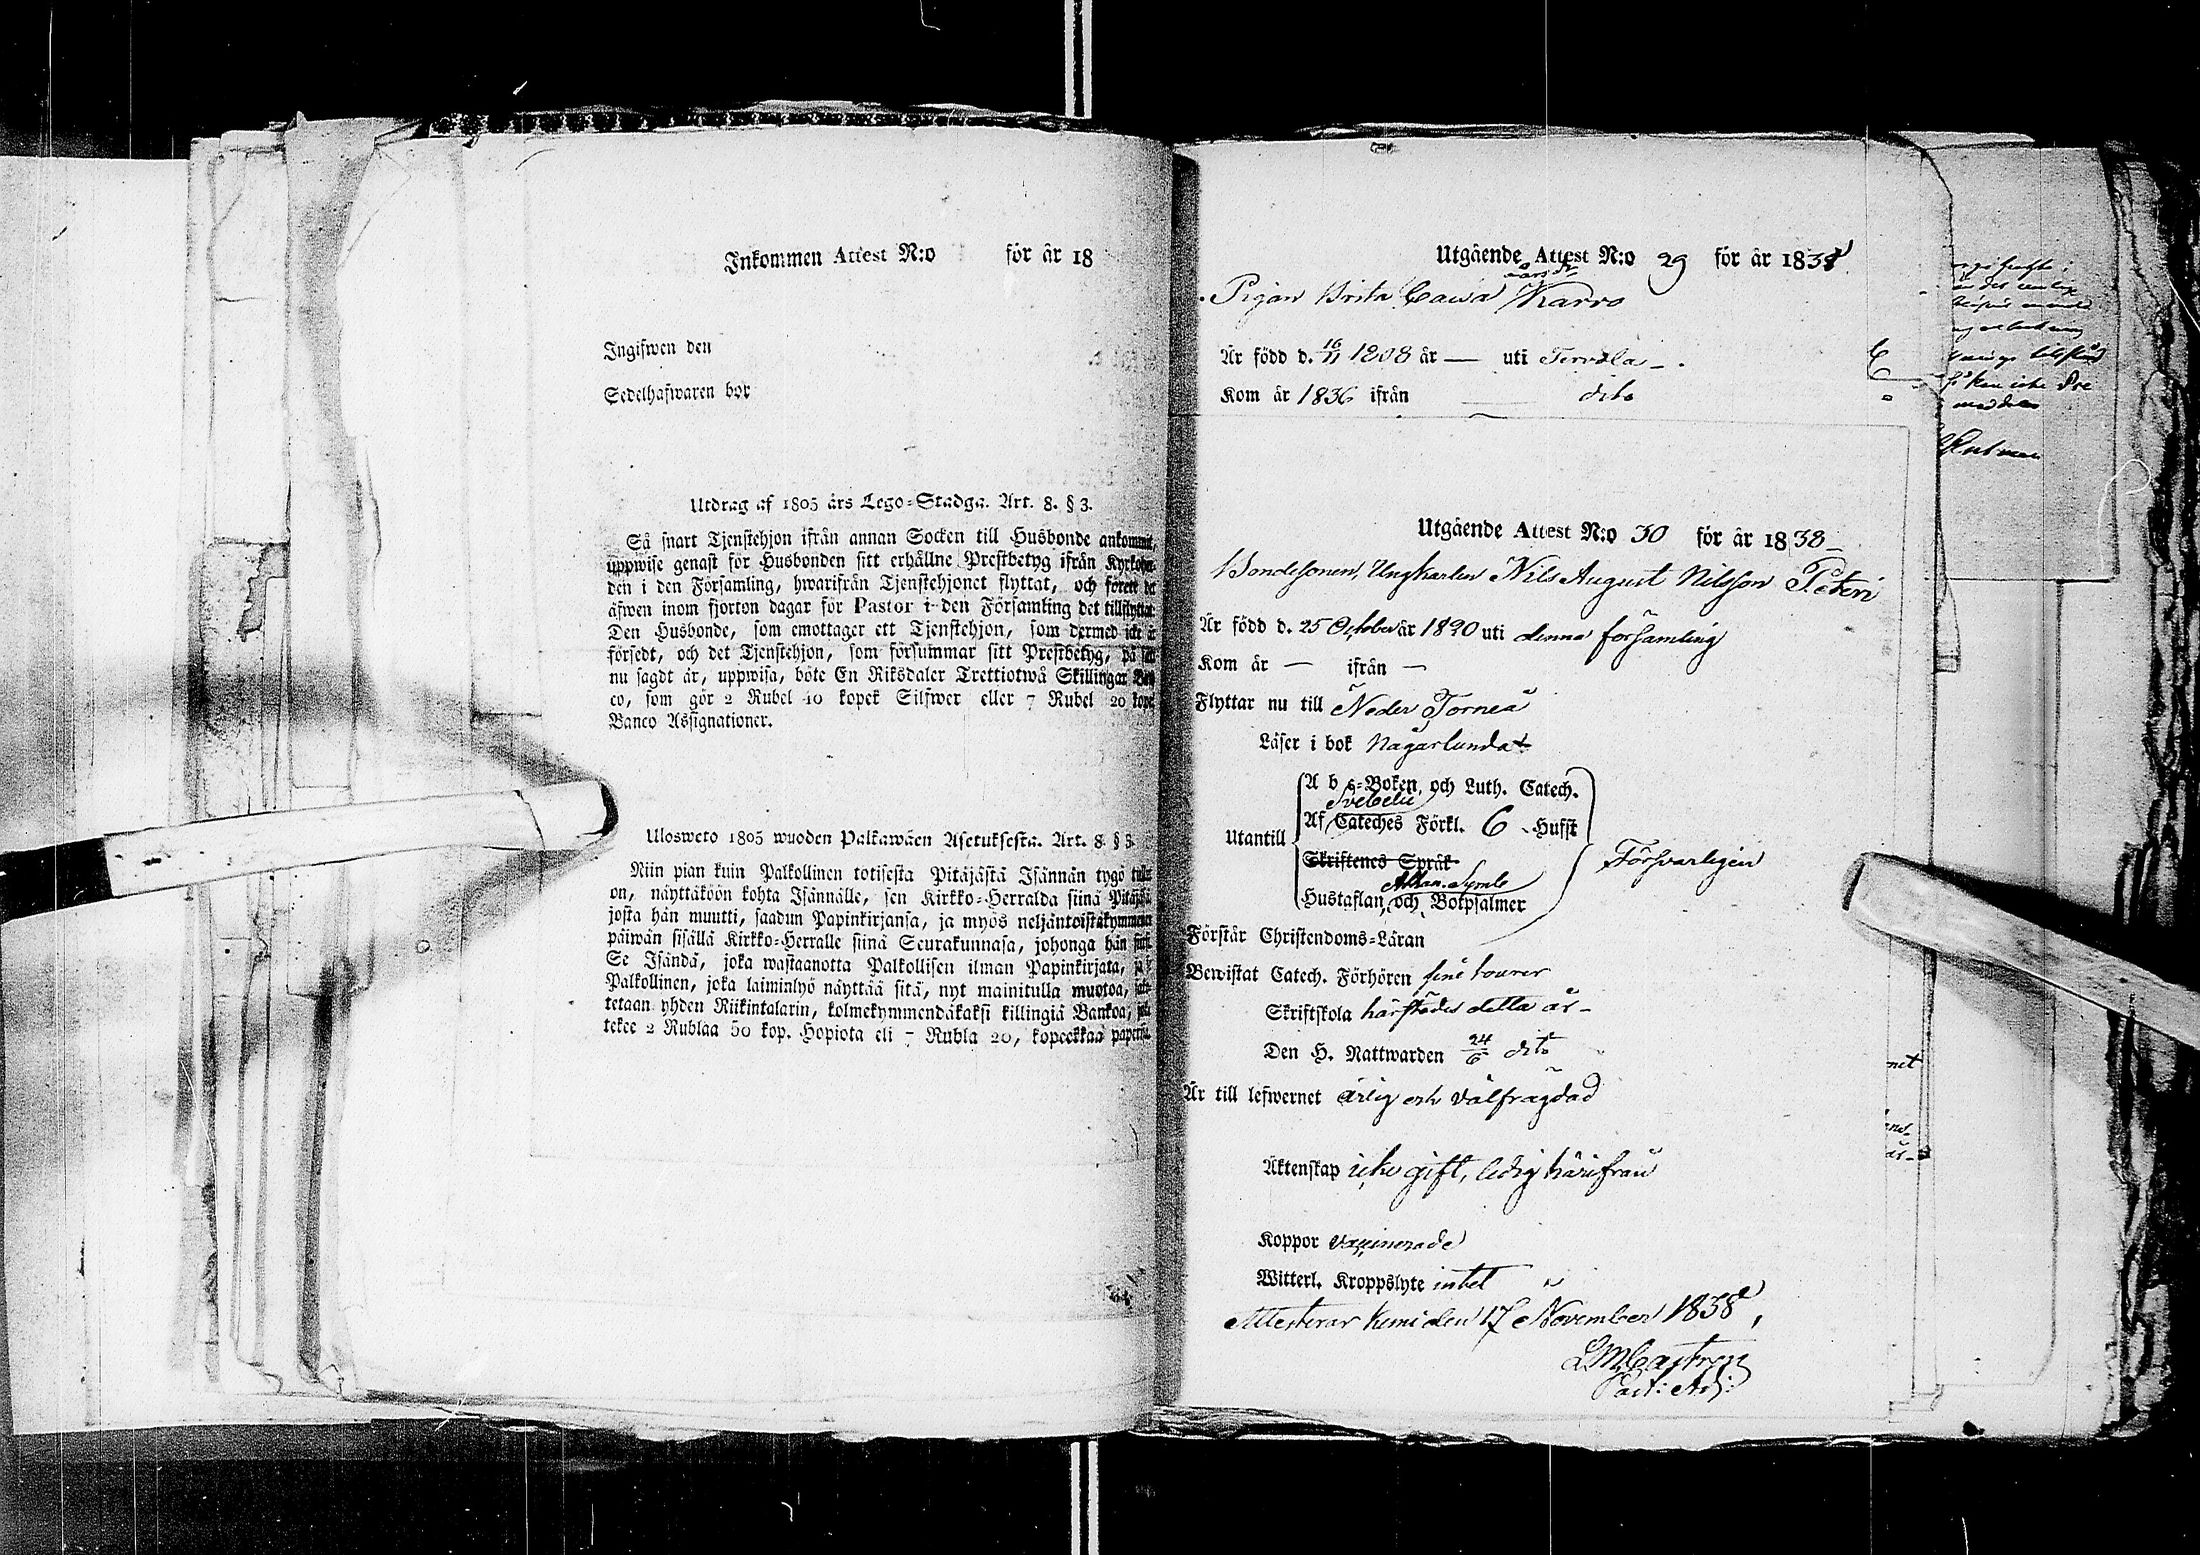 Inkommen Attest N:o för år 18
Ingifwen den
Sedelhafwaren bor
Utdrag af 1805 års Lego-Stadga. Art. 8. § 3.
Så snart Tjenstehjon ifrån annan Socken till Husbonde ankommit,
uppwise genast för Husbonden sitt erhållne Prestbetyg ifrån Kyrkoher
den i den Församling, hwarifrån Tjenstehjonet flyttat, och förete det
äfwen inom fjorton dagar för Pastor i den Församling det tillflyttat.
Den Husbonde, som emottager ett Tjenstehjon, som dermed icke är
försedt, och det Tjenstehjon, som försummar sitt Prestbetyg, på sätt
nu sagdt är, uppwisa, böte En Riksdaler Trettiotwå Skillingar Ban
co, som gör 2 Rubel 40 kopek Silfwer eller 7 Rubel 20 kopek
Banco Assignationer.
Ulosweto 1805 wuoden Palkawäen Asetuksesta. Art. 8. § 3.
Niin pian kuin Palkollinen totisesta Pitäjästä Isännän tygö tullut
on, näyttäköön kohta Isännälle, sen Kirkko-Herralda siinä Pitäjäsä
josta hän muutti, saadun Papinkirjansa, ja myös neljäntoistakymmenen
päiwän sisällä Kirkko-Herralle siinä Seurakunnasa, johonga hän
Se Isändä, joka wastaanotta Palkollisen ilman Papinkirjata, ja
Palkollinen, joka laiminlyö näyttää sitä, nyt mainitulla muotoa,
tetaan yhden Riikintalarin, kolmekymmendäkaksi killingiä Bankoa, joka
tekee 2 Rublaa 50 kop. Hopiota eli 7 Rubla 20, kopeekkaa paperia
Utgående Attest N:o 29 för år 1838
Pigan Brita Cawa Karro
Är född d. 16/11 1808 år — uti Tervola
Kom år 1836 ifrån — dito
Utgående Attest N:o 30 för år 1838
Bondesonen, Ungkarlen Nils August Nilsson Peteri
Är född d. 25 October år 1820 uti denna församling
Kom år — ifrån —
Flyttar nu till Neder Torneå
Läser i bok någorlunda
A b c-Boken, och Luth. Catech.
Svebelii
Af Cateches Förkl. 6 Hufst
Utantill
Skriftenes Språk
Försvarligen
Athan. Symb
Hustaflan, och Botpsalmer
Förstår Christendoms-Läran
Bewistat Catech. Förhören sine tourer
Skriftskola härstädes detta år
Den H. Nattwarden 24/6 dito
Är till lefwernet ärlig och välfrägdad
Äktenskap icke gift, ledig härifrån
Koppor vaccinerade
Witterl. Kroppslyte intet
Attesterar Kemi den 17 November 1838,
L M Castren
Past: Adj: